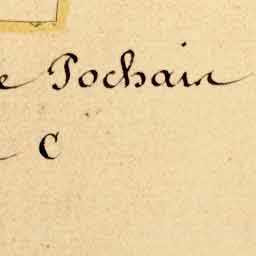 e Pochain
C